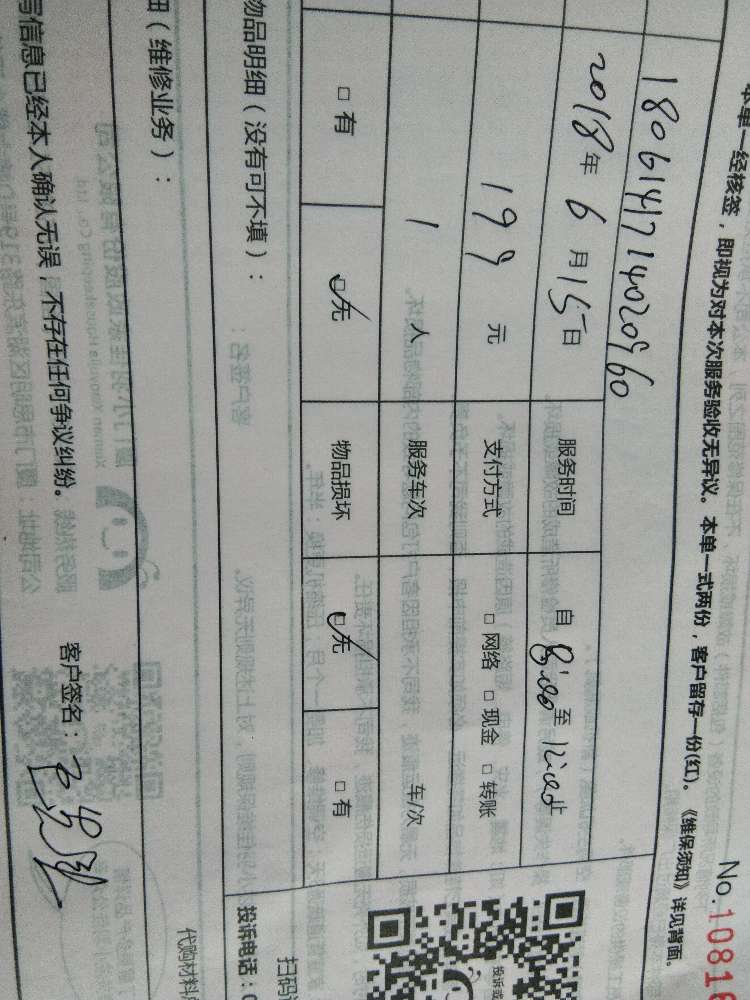 No.1081
本单一经核签，即视为对本次服务验收无异议。本单一式两份，客户留存一份(红)。《维保须知》详见背面。
1806141714020960
2018年6月15日 服务时间 自8:00至12:00止
199元 支付方式 □网络 □现金 □转账
1人 服务车次 车/次
□有 □无 物品损坏 □无 □有
物品明细（没有可不填）：
投诉电话：
细（维修业务）：
代购材料
写信息已经本人确认无误，不存在任何争议纠纷。 客户签名：
扫码
投诉或